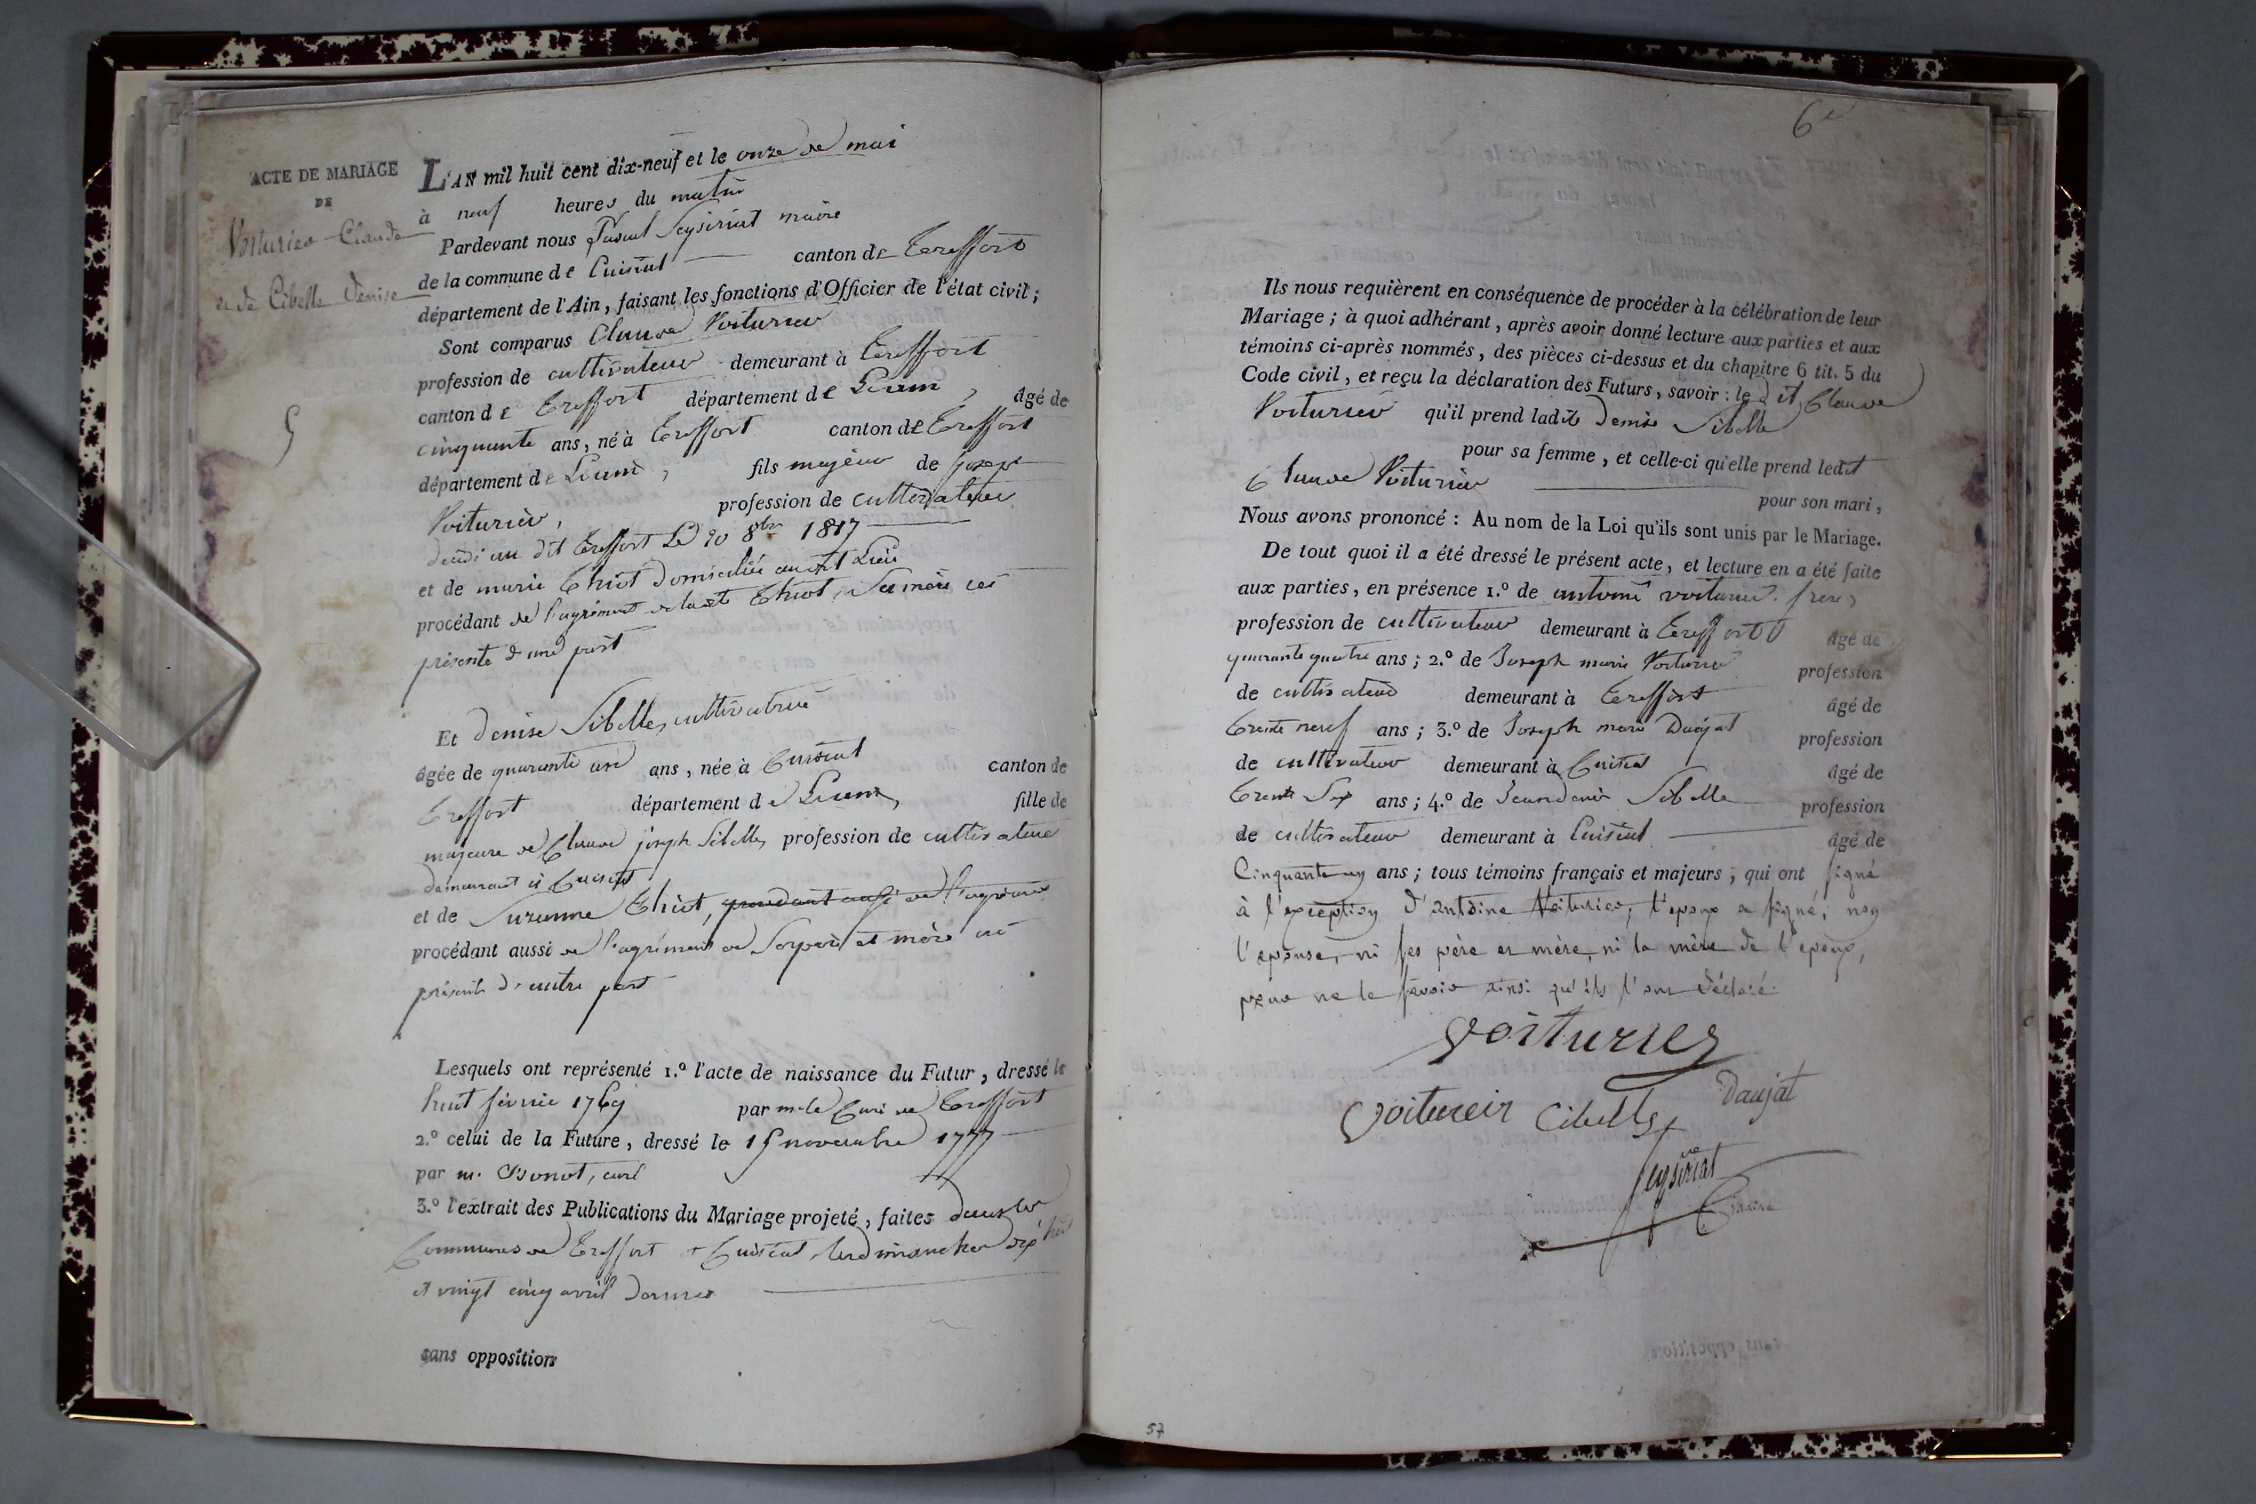 ACTE DE MARIAGE
DE
Voiturier Claude
et de Cibelle Denise
5
L'AN mil huit cent dix-neuf et le onze de mai
à neuf heures du matin
Pardevant nous Pascal Seysiriat maire
de la commune de Cuisiat canton de Treffort
département de l'Ain, faisant les fonctions d'Officier de l'état civil;
Sont comparus Claude Voiturier
profession de cultivateur demeurant à Treffort
canton de Treffort département de Lain, âgé de
cinquante ans, né à Treffort canton de Treffort
département de Lain, fils majeur de Joseph
Voiturier, profession de cultivateur
décédé au dit Treffort Le 20 8bre 1817
et de marie Thiot domiciliée audit Lieu
procédant de l'agrément de ladte Thiot, Sa mère ici
présente d'une part
Et denise Sibelle, cultivatrice
âgée de quarante un ans, née à Cuisiat canton de
Treffort département de Lain, fille de
majeure de Claude joseph Sibelle, profession de cultivateur
demeurant à Cuisiat
et de Suzanne Thiot, procédant aussi de l'agrément
procédant aussi de l'agrément de Ses père et mère ici
présents d'autre part
Lesquels ont représenté 1.º l'acte de naissance du Futur, dressé le
huit février 1769 par m. le Curé de Treffort
2.º celui de la Future, dressé le 15 novembre 1777
par m. Bonnot, curé
3.º l'extrait des Publications du Mariage projeté, faites dans les
Communes de Treffort et Cuisiat, les dimanches dix huit
et vingt cinq avril dernier
sans opposition
6e
Ils nous requièrent en conséquence de procéder à la célébration de leur
Mariage; à quoi adhérant, après avoir donné lecture aux parties et aux
témoins ci-après nommés, des pièces ci-dessus et du chapitre 6 tit. 5 du
Code civil, et reçu la déclaration des Futurs, savoir: le dit Claude
Voiturier qu'il prend ladite Denise Sibelle
pour sa femme, et celle-ci qu'elle prend ledit
Claude Voiturier pour son mari,
Nous avons prononcé: Au nom de la Loi qu'ils sont unis par le Mariage.
De tout quoi il a été dressé le présent acte, et lecture en a été faite
aux parties, en présence 1.º de antoine voiturier frere,
profession de cultivateur demeurant à Treffort âgé de
quarante quatre ans; 2.º de Joseph marie Voiturier profession
de cultivateur demeurant à Treffort âgé de
trente neuf ans; 3.º de Joseph marie Daujat profession
de cultivateur demeurant à Cuisiat âgé de
trente Six ans; 4.º de Jean denis Sibelle profession
de cultivateur demeurant à Cuisiat âgé de
Cinquante un ans; tous témoins français et majeurs; qui ont signé
à l'exception d'Antoine Voiturier, l'epoux a signé, non
l'epouse, ni ses père et mère, ni la mère de l'epoux,
pour ne le savoir ainsi qu'ils l'ont déclaré.
voiturier
voitureir Cibelle Daujat
Seysiriat
maire
57